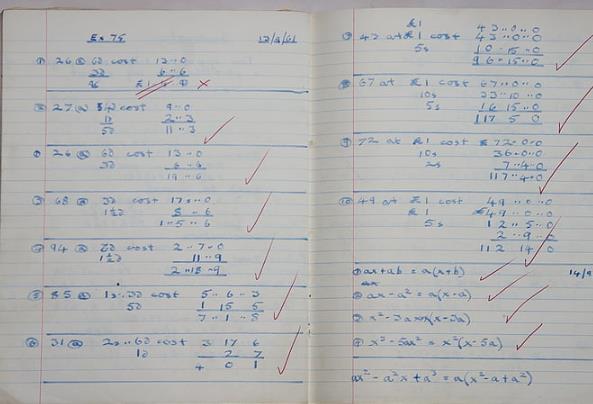 Ex 75 12/9/61
① 26 @ 6d cost 13..0
3d 6..6
② 27 @ 4d cost 9..0
1d 2..3
5d 11..3
26 @ 6d cost 13..0
3d 6..6
19..6
③ 68 @ 3d cost 17..0
1½d 8..6
1..5..6
④ 94 @ cost 2..7..0
1½d 11..9
2..18..9
⑤ 85 @ 1s..3d cost 5..6..3
5d 1 15 5
7..1..8
⑥ 31 @ 2s..6d cost 3 17 6
1d 2 7
4 0 1
£1 43..0..0
⑦ 43 at £1 cost 43..0..0
5s 10..15..0
96..15..0
⑧ 67 at £1 cost 67..0..0
10s 33..10..0
5s 16 15..0
117 5 0
⑨ 72 at £1 cost £72..0..0
10s 36..0..0
2s 7..4..0
⑩ 49 at £1 cost 49..0..0
£1 49..0..0
5s 12..5..0
2..9..0
112 14 0
① ax+ab = a(x+b) 14/9
② ax-a² = a(x-a)
③ x²-3ax x(x-3a)
④ x³-5ax² = x²(x-5a)
ax²-a²x+a³ = a(x²-a+a²)